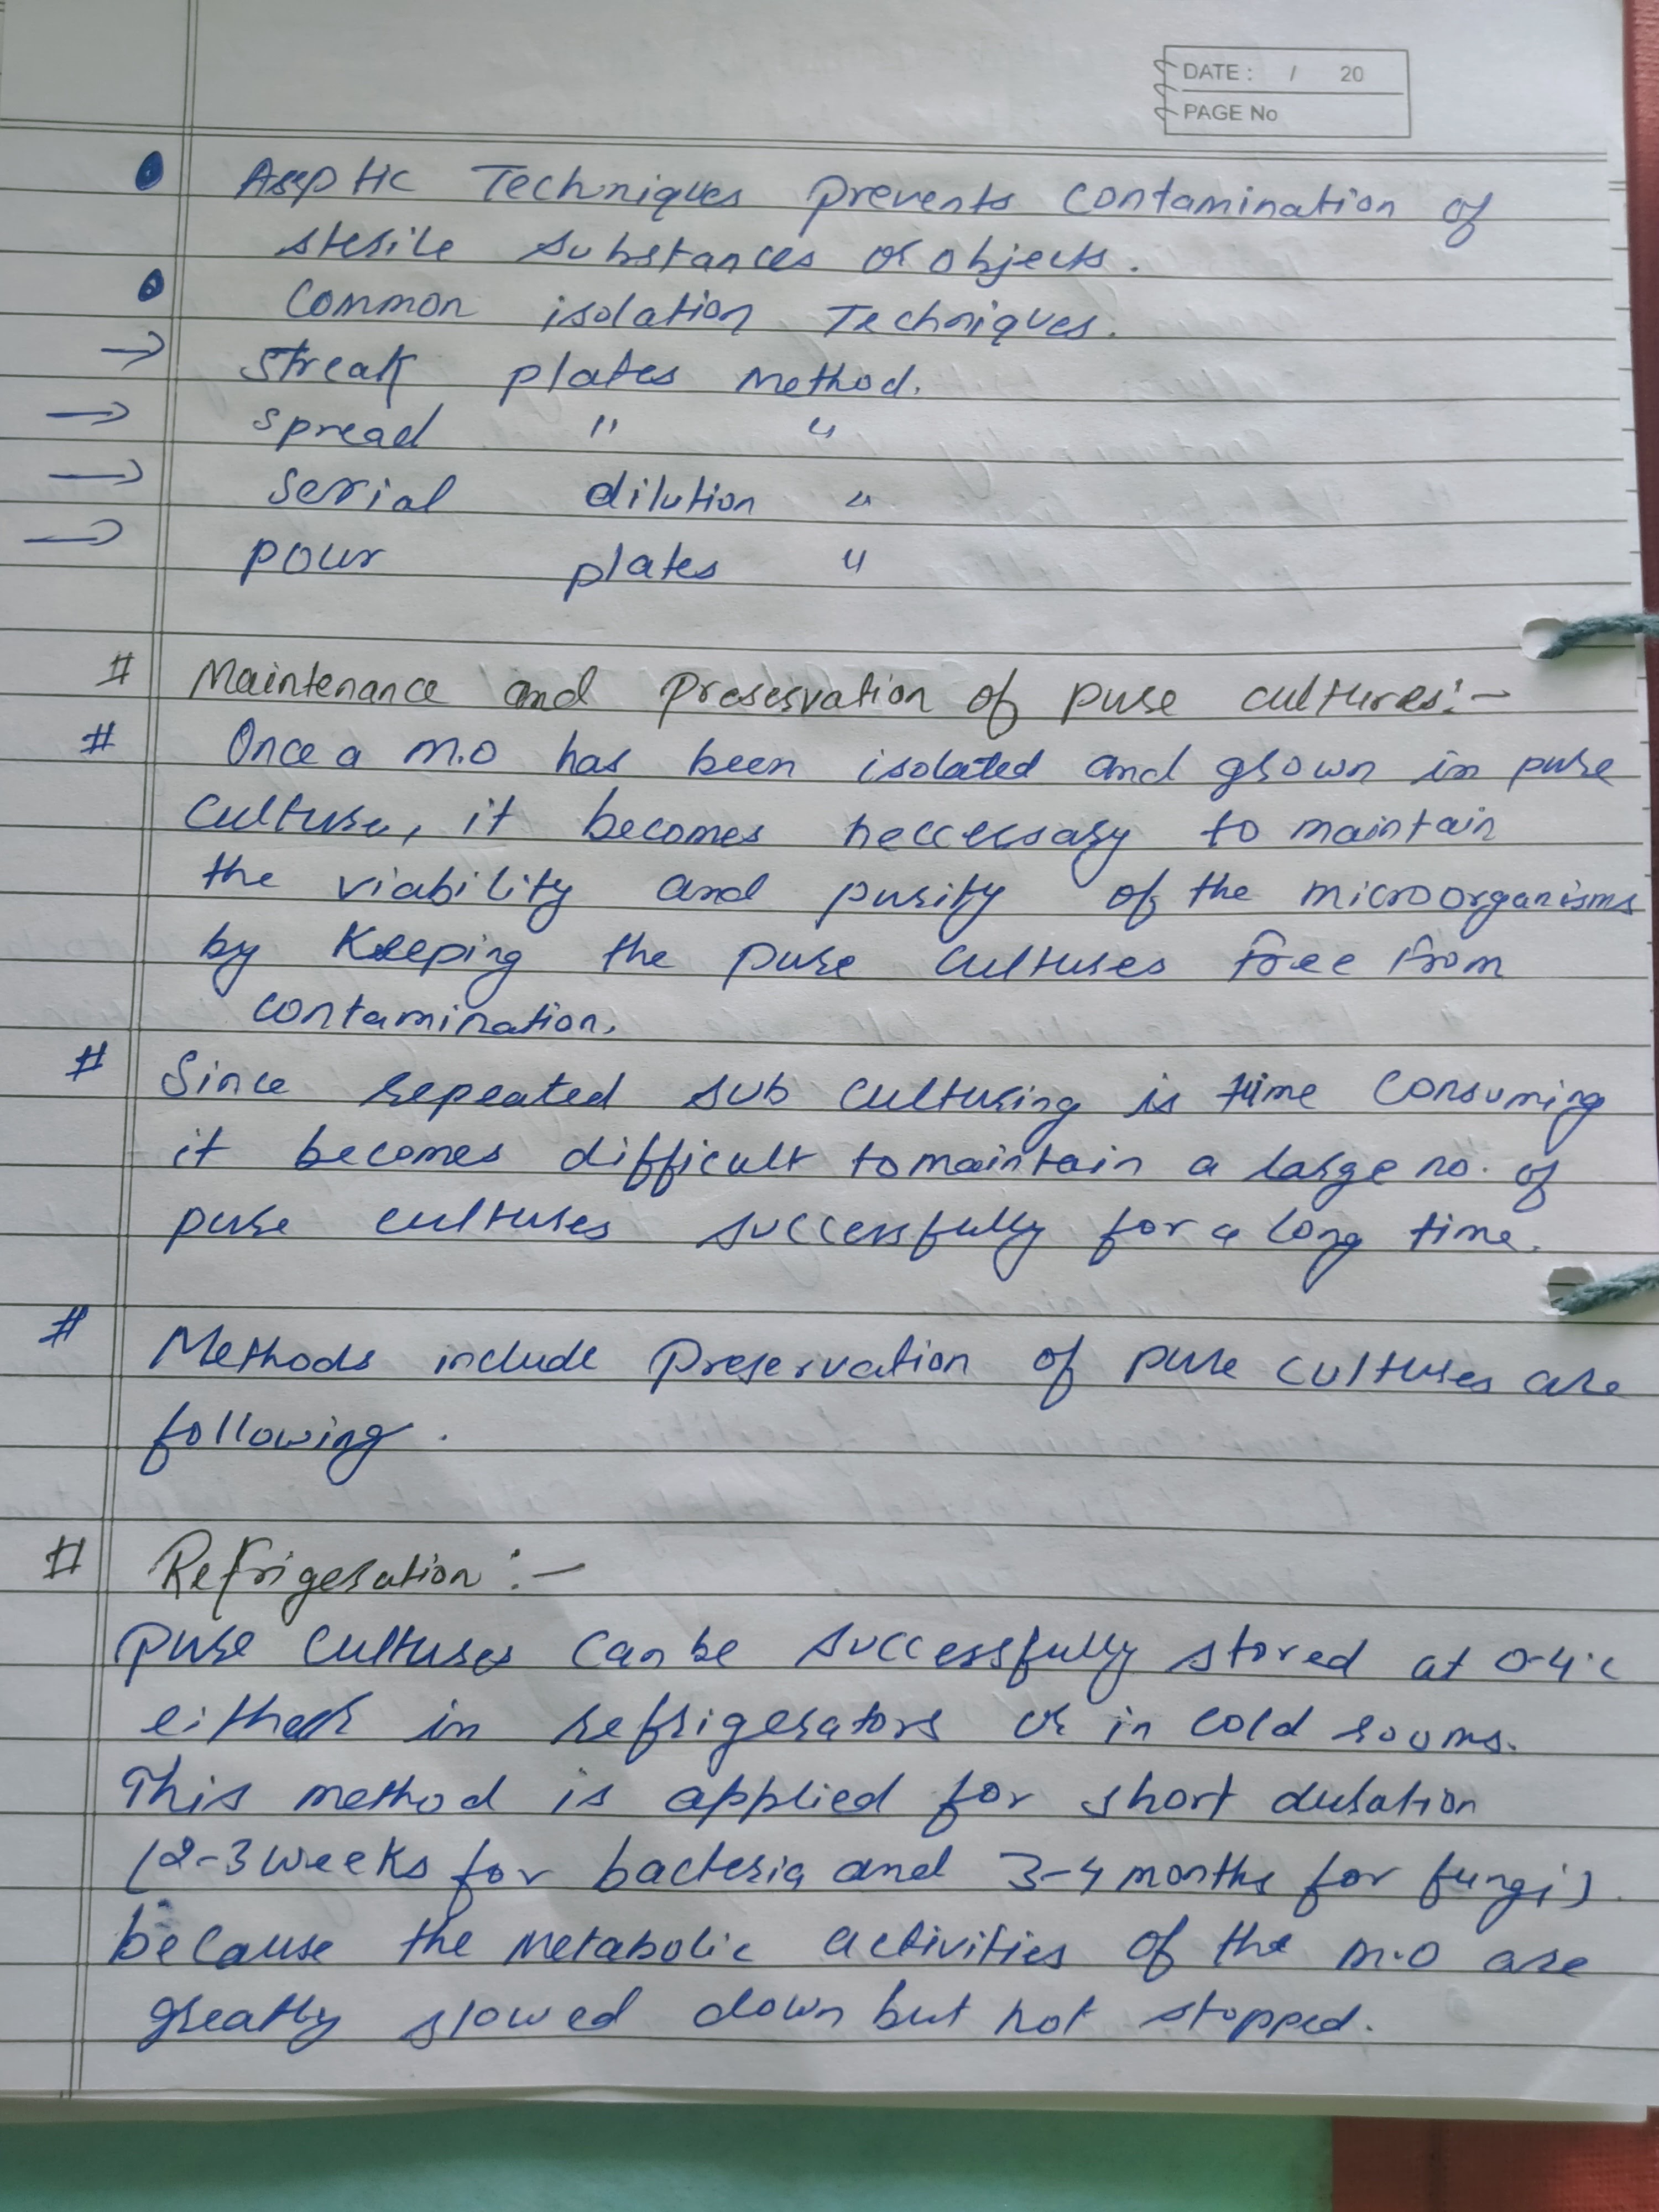 DATE : / 20
PAGE No
Aseptic Techniques prevents contamination of
sterile substances or objects.
Common isolation Techniques.
→ Streak plates method.
→ spread " "
→ serial dilution "
→ pour plates "
# Maintenance and Preservation of pure cultures:-
# Once a m.o has been isolated and grown in pure
culture, it becomes neccessary to maintain
the viability and purity of the microorganisms
by Keeping the pure cultures free from
contamination.
# Since repeated sub culturing is time consuming
it becomes difficult to maintain a large no. of
pure cultures successfully for a long time.
# Methods include preservation of pure cultures are
following.
# Refrigeration :-
pure cultures can be successfully stored at 0-4°c
either in refrigerators or in cold rooms.
This method is applied for short duration
(2-3 weeks for bacteria and 3-4 months for fungi)
because the metabolic activities of the m.o are
greatly slowed down but not stopped.